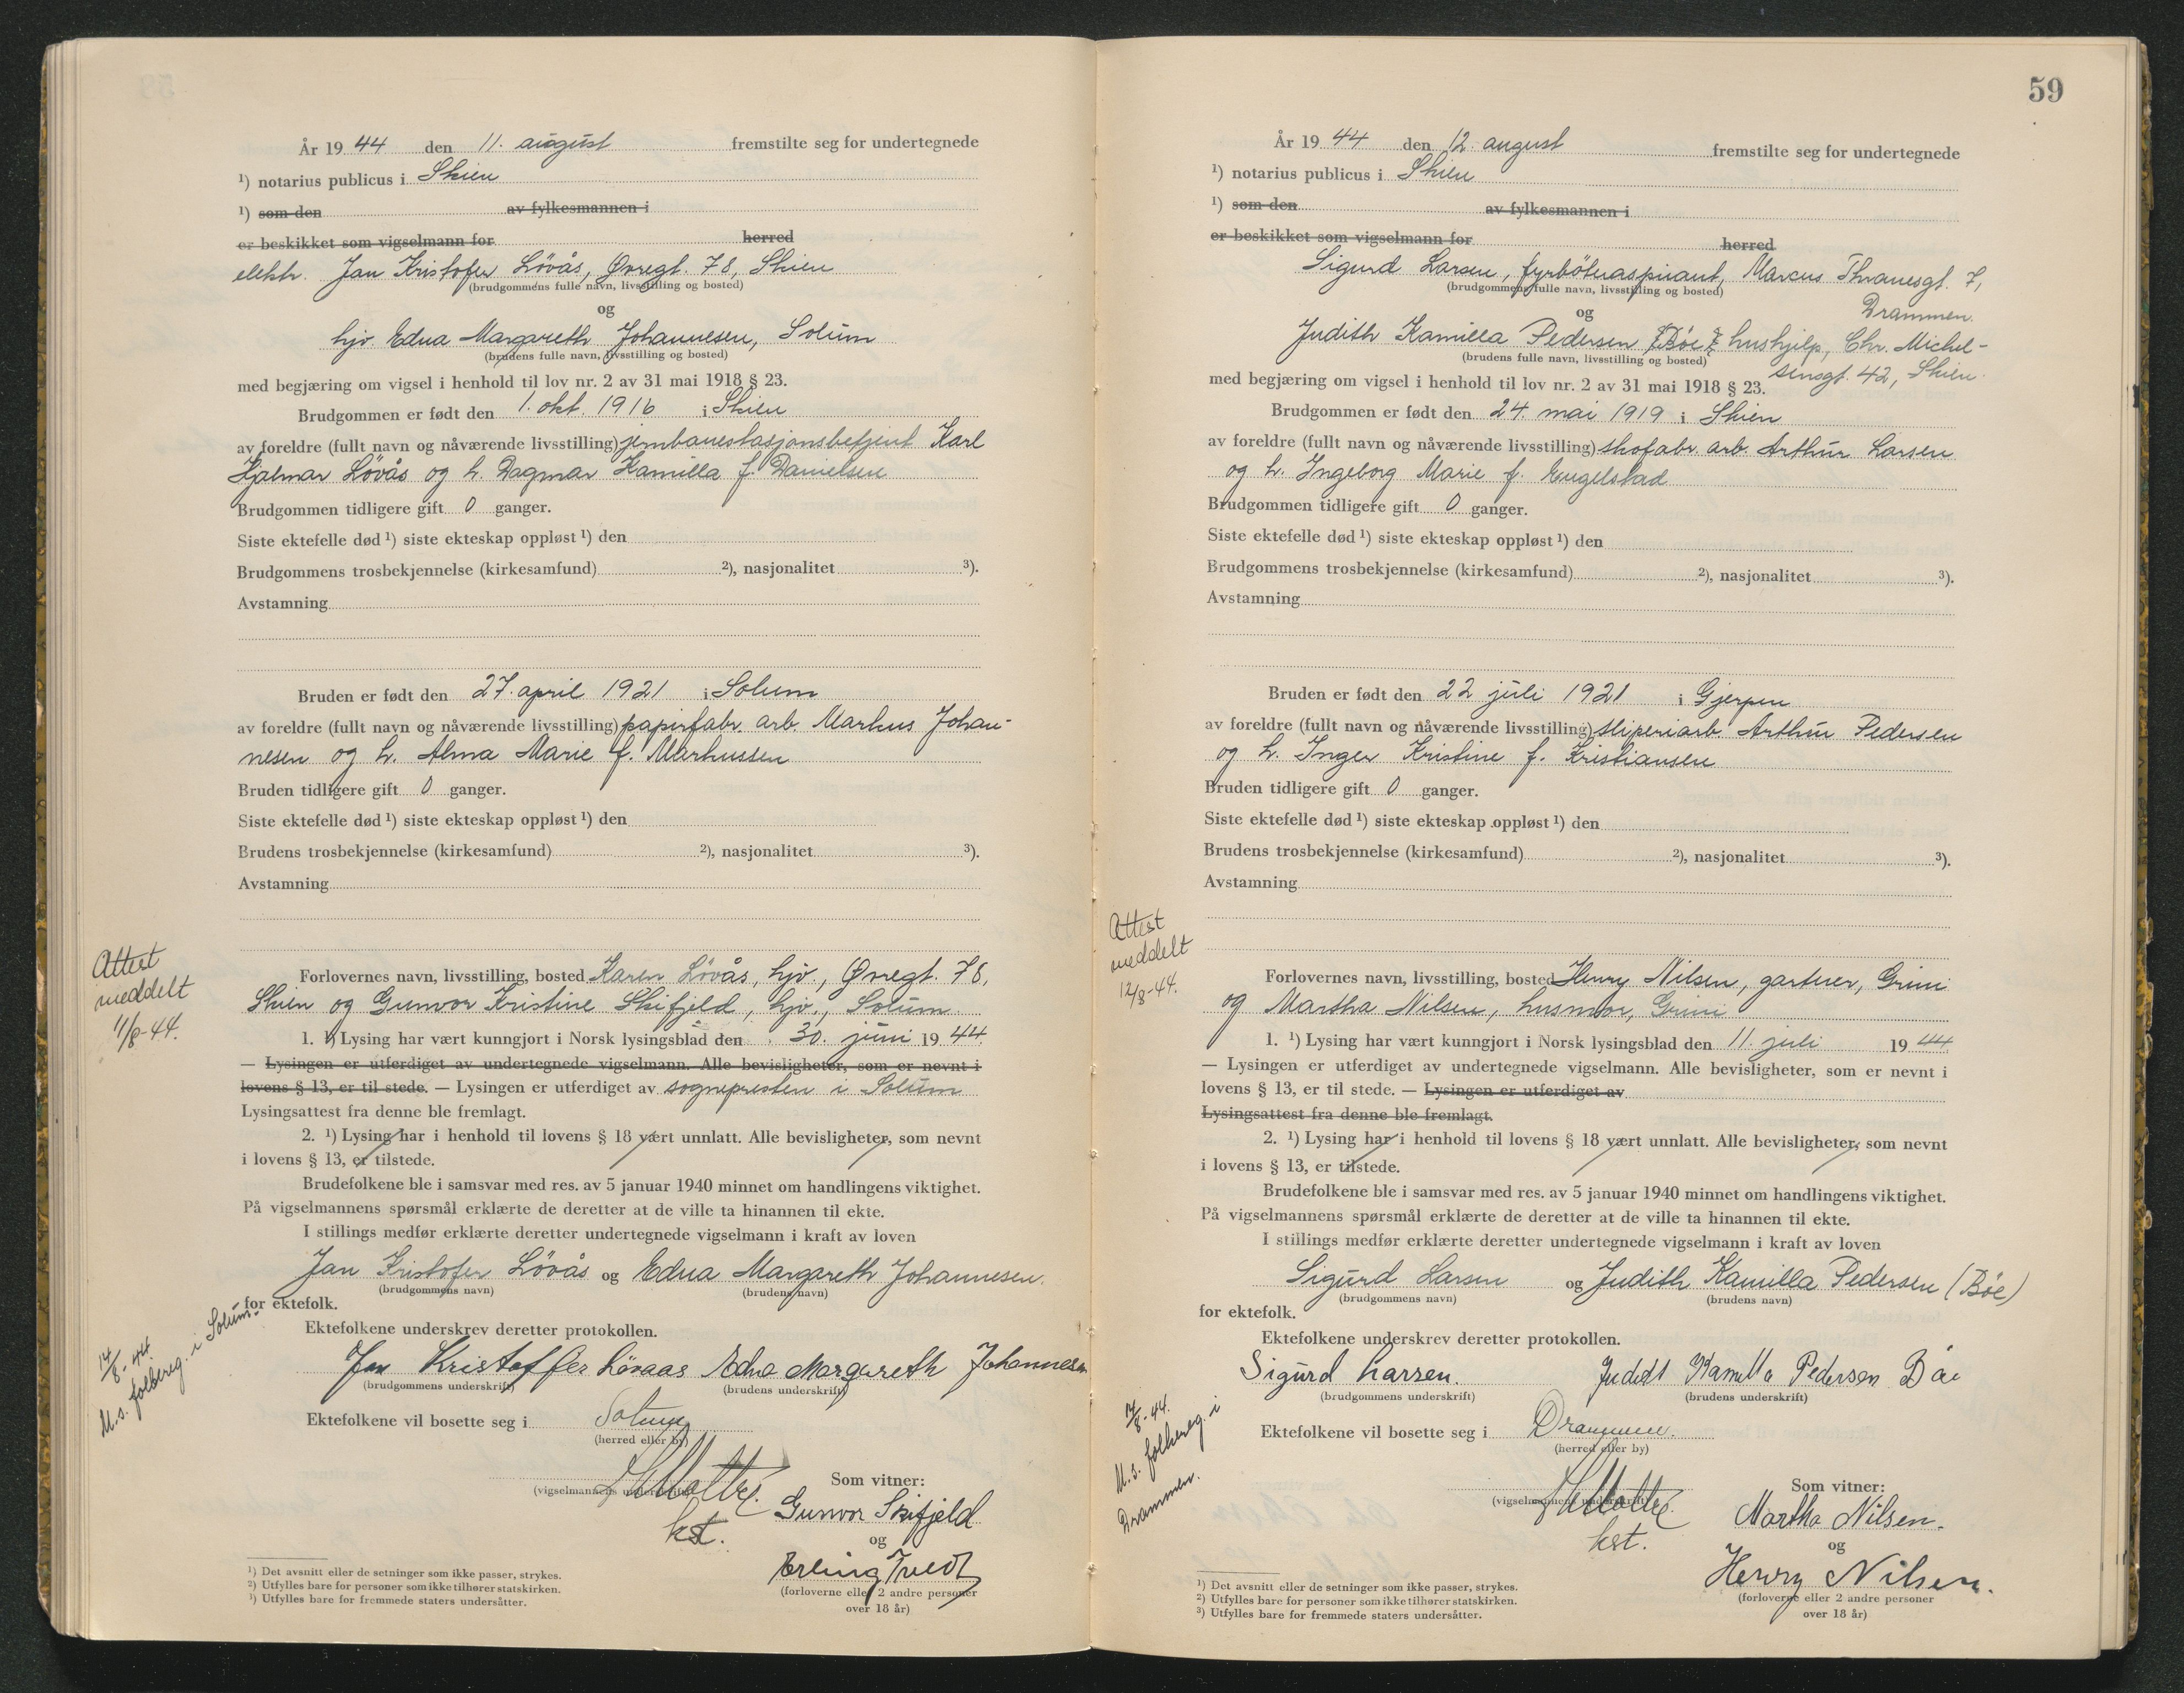 År 1944 den 11. august fremstilte seg for undertegnede
¹) notarius publicus i Skien
¹) som den av fylkesmannen i
er beskikket som vigselmann for herred
elektr. Jan Kristofer Lövås, Øvregt. 78, Skien
(brudgommens fulle navn, livsstilling og bosted)
og
hjv Edna Margareth Johannesen, Solum
(brudens fulle navn, livsstilling og bosted)
med begjæring om vigsel i henhold til lov nr. 2 av 31 mai 1918 § 23.
Brudgommen er født den 1. okt. 1916 i Skien
av foreldre (fullt navn og nåværende livsstilling) jernbanestasjonsbetjent Karl
Hjalmar Lövås og h. Dagmar Kamilla f. Danielsen
Brudgommen tidligere gift 0 ganger.
Siste ektefelle død ¹) siste ekteskap oppløst ¹) den
Brudgommens trosbekjennelse (kirkesamfund) ²), nasjonalitet ³).
Avstamning
Bruden er født den 27. april 1921 i Solum
av foreldre (fullt navn og nåværende livsstilling) papirfabr. arb. Markus Johan-
nesen og h. Alma Marie f.
Bruden tidligere gift 0 ganger.
Siste ektefelle død ¹) siste ekteskap oppløst ¹) den
Brudens trosbekjennelse (kirkesamfund) ²), nasjonalitet ³).
Avstamning
Attest
meddelt
11/8-44.
Forlovernes navn, livsstilling, bosted Karen Lövås, hjv., Øvregt. 78,
Skien og Gunvor Kristine Skifjeld, hjv., Solum
1. ¹) Lysing har vært kunngjort i Norsk lysingsblad den 30. juni 1944
— Lysingen er utferdiget av undertegnede vigselmann. Alle bevisligheter, som er nevnt i
lovens § 13, er til stede. — Lysingen er utferdiget av sognepresten i Solum
Lysingsattest fra denne ble fremlagt.
2. ¹) Lysing har i henhold til lovens § 18 vært unnlatt. Alle bevisligheter, som nevnt
i lovens § 13, er tilstede.
Brudefolkene ble i samsvar med res. av 5 januar 1940 minnet om handlingens viktighet.
På vigselmannens spørsmål erklærte de deretter at de ville ta hinannen til ekte.
I stillings medfør erklærte deretter undertegnede vigselmann i kraft av loven
Jan Kristofer Lövås og Edna Margareth Johannesen
(brudgommens navn) (brudens navn)
for ektefolk.
Ektefolkene underskrev deretter protokollen.
Jan Kristoffer Løvaas Edna Margareth Johannesen
(brudgommens underskrift) (brudens underskrift)
14/8-44
M.s. folkereg. i Solum.
Ektefolkene vil bosette seg i Solum
(herred eller by)
(vigselmannens underskrift)
kst.
Som vitner:
Gunvor Skifjeld
og
Erling Tvedt
(forloverne eller 2 andre personer
over 18 år)
¹) Det avsnitt eller de setninger som ikke passer, strykes.
²) Utfylles bare for personer som ikke tilhører statskirken.
³) Utfylles bare for fremmede staters undersåtter.
59
År 1944 den 12. august fremstilte seg for undertegnede
¹) notarius publicus i Skien
¹) som den av fylkesmannen i
er beskikket som vigselmann for herred
Sigurd Larsen, fyrböteraspirant, Marcus Thranesgt. 7,
(brudgommens fulle navn, livsstilling og bosted)
Drammen.
og
Judith Kamilla Pedersen (Böe) hushjelp, Chr. Michel-
(brudens fulle navn, livsstilling og bosted)
sensgt. 42, Skien.
med begjæring om vigsel i henhold til lov nr. 2 av 31 mai 1918 § 23.
Brudgommen er født den 24. mai 1919 i Skien
av foreldre (fullt navn og nåværende livsstilling) skofabr. arb. Arthur Larsen
og h. Ingeborg Marie f. Engelstad
Brudgommen tidligere gift 0 ganger.
Siste ektefelle død ¹) siste ekteskap oppløst ¹) den
Brudgommens trosbekjennelse (kirkesamfund) ²), nasjonalitet ³).
Avstamning
Bruden er født den 22 juli 1921 i Gjerpen
av foreldre (fullt navn og nåværende livsstilling) sliperiarb. Arthur Pedersen
og h. Inger Kristine f. Kristiansen
Bruden tidligere gift 0 ganger.
Siste ektefelle død ¹) siste ekteskap oppløst ¹) den
Brudens trosbekjennelse (kirkesamfund) ²), nasjonalitet ³).
Avstamning
Attest
meddelt
12/8-44.
Forlovernes navn, livsstilling, bosted Henry Nilsen, gartner, Grini
og Martha Nilsen, husmor, Grini
1. ¹) Lysing har vært kunngjort i Norsk lysingsblad den 11. juli 1944
— Lysingen er utferdiget av undertegnede vigselmann. Alle bevisligheter, som er nevnt i
lovens § 13, er til stede. — Lysingen er utferdiget av
Lysingsattest fra denne ble fremlagt.
2. ¹) Lysing har i henhold til lovens § 18 vært unnlatt. Alle bevisligheter, som nevnt
i lovens § 13, er tilstede.
Brudefolkene ble i samsvar med res. av 5 januar 1940 minnet om handlingens viktighet.
På vigselmannens spørsmål erklærte de deretter at de ville ta hinannen til ekte.
I stillings medfør erklærte deretter undertegnede vigselmann i kraft av loven
Sigurd Larsen og Judith Kamilla Pedersen (Böe)
(brudgommens navn) (brudens navn)
for ektefolk.
Ektefolkene underskrev deretter protokollen.
Sigurd Larsen. Judith Kamilla Pedersen Böe
(brudgommens underskrift) (brudens underskrift)
14/8-44.
M.s. folkereg. i
Drammen.
Ektefolkene vil bosette seg i Drammen.
(herred eller by)
(vigselmannens underskrift)
kst.
Som vitner:
Martha Nilsen.
og
Henry Nilsen.
(forloverne eller 2 andre personer
over 18 år)
¹) Det avsnitt eller de setninger som ikke passer, strykes.
²) Utfylles bare for personer som ikke tilhører statskirken.
³) Utfylles bare for fremmede staters undersåtter.